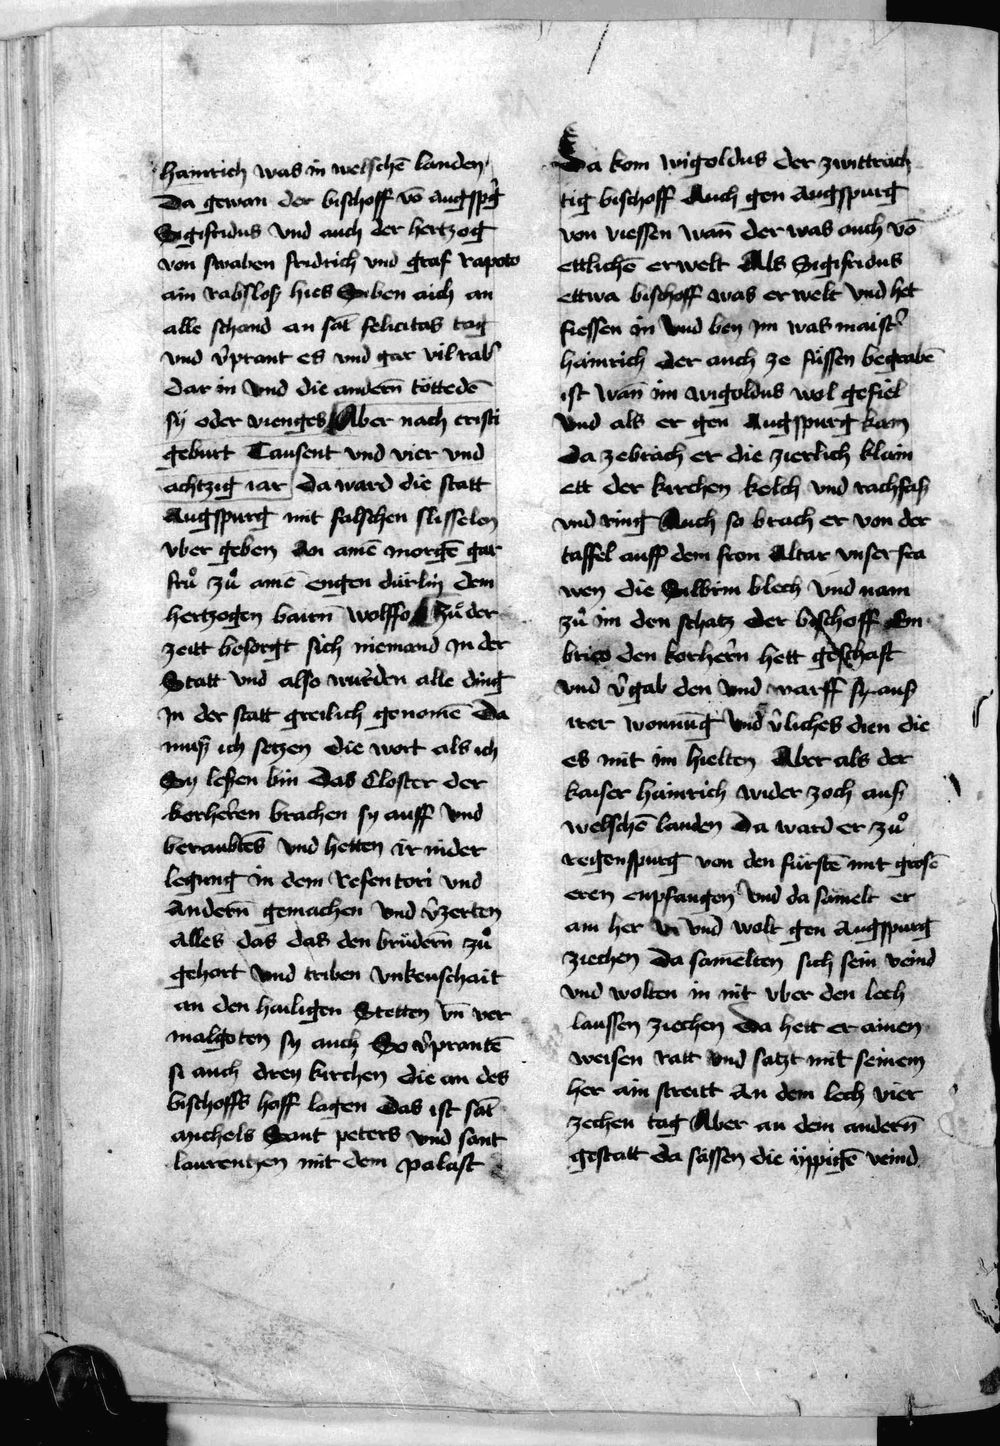 hainrich was in welschē landen
Da gewan der bischoff vō augspg̃
Sigifridus vnd auch der hertzog
von swaben fridrich vnd graf rapoto
ain rabsloß hies Siben aich an
alle schand an sāt felicitas tag
vnd v̉prant es vnd gar vil rab̉
dar in vnd die andern̄ töttedē
sÿ oder vienges Aber nach cristi
geburt Tausent vnd vier vnd
achtzig iar da ward die statt
Augspurg mit falschen slisselen
vber geben An amē morgē gar
frů zů amē engen dürlin dem
hertzogen bairn̄ wolffo zů der
zeitt besorgt sich niemand in der
Statt vnd also wurden alle ding
In der statt greilich genomē Da
muß ich setzen die wort als ich
Sy lesen bin Das Closter der
korherren brachen sy auff vnd
beraubtēs vnd hetten ir nider
legung in dem Refentori vnd
Andern̄ gemachen vnd v̉zerten
Alles das das den brüdern̄ zů
gehort vnd triben vnkeuschait
an den hailigen Stetten vn̄ ver
malgoten sy auch So v̉prantē
si auch drey kirchen die an des
bischoffs hoff lagen Das ist sāt
michels Sant peters vnd sant
laurentzen mit dem palast
Da kom wigoldus der zwittrāch
tig bischoff Auch gen Augspurg
von viessen wan̄ der was auch vō
ettlichē erwelt Als Sigifridus
ettwa bischoff was erwelt vnd het
fiessen in vnd bey im was maist̉
hainrich der auch ze füssen begrabē
ist wan̄ im wigoldus wol gefiel
vnd als er gen Augspurg kam
Da zebrach er die zierlich klain
ett der kirchen kelch vnd rachfaß
vnd ring Auch so brach er von der
taffel auff dem fron Altar vnser fra
wen die Silbrin blech vnd nam
zů im den schatz der bischoff Em
brico den korhern̄ hett geschaft
vnd v̉gab den vnd warff sy auß
irer wonūg vnd v̉liches dien die
es mit im hielten Aber als der
kaiser hainrich wider zoch auß
welschē landen Da ward er zů
regenspurg von den fürstē mit grosē
eren enpfangen vnd da samelt er
ain her vnd wolt gen Augspurg
ziechen Da samelten sich sein veind
vnd wolten in nit vber den lech
laussen ziechen Da hett er ainen
weisen ratt vnd satzt mit seinem
her ain streitt An dem lech vier
zechen tag Aber an dem andern̄
gestatt da sässen die üppigē veind